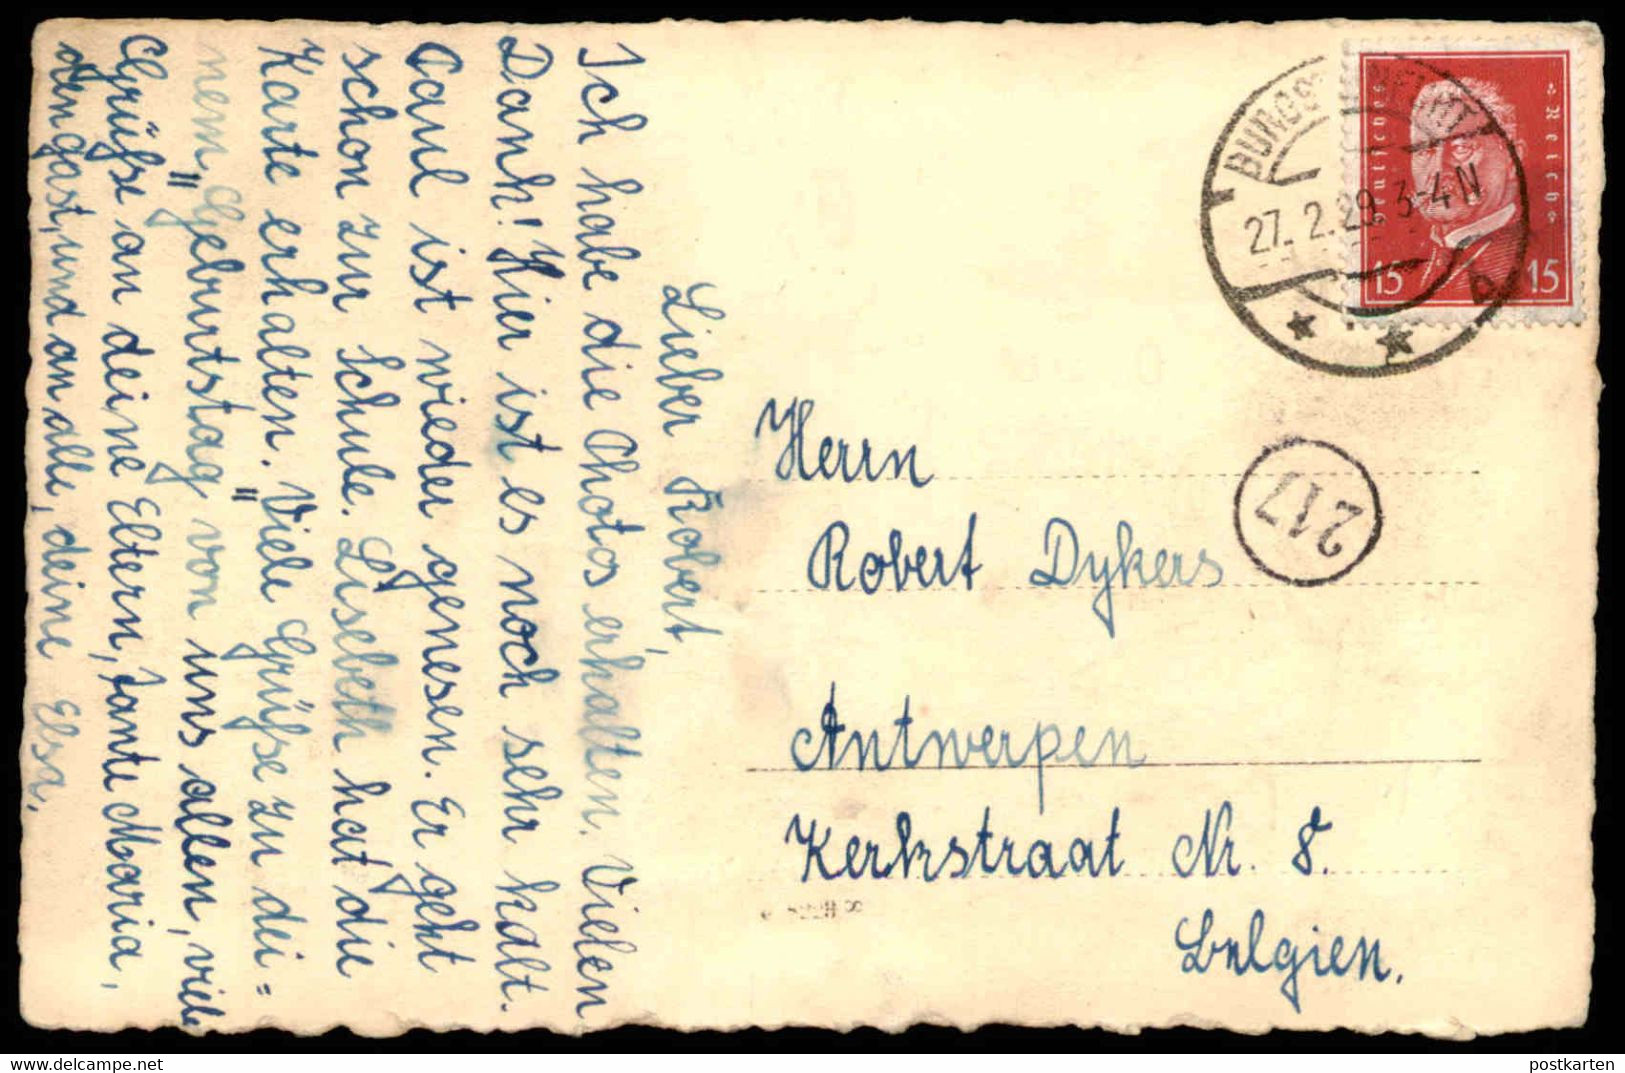 Lieber Robert,
Ich habe die Photos erhalten. Vielen
Dank! Hier ist es noch sehr kalt.
Paul ist wieder genesen. Er geht
schon zur Schule. Liesbeth hat die
Karte erhalten. Viele Grüße zu dei=
nem Geburtstag von uns allen, viele
Grüße an deine Eltern, Tante Maria,
und an alle, deine Elsa.
Deutsches Reich
15 15
27. 2. 29. 3-4 N
217
Herrn
Robert Dykers
Antwerpen
Kerkstraat Nr. 8.
Belgien.
postkarten